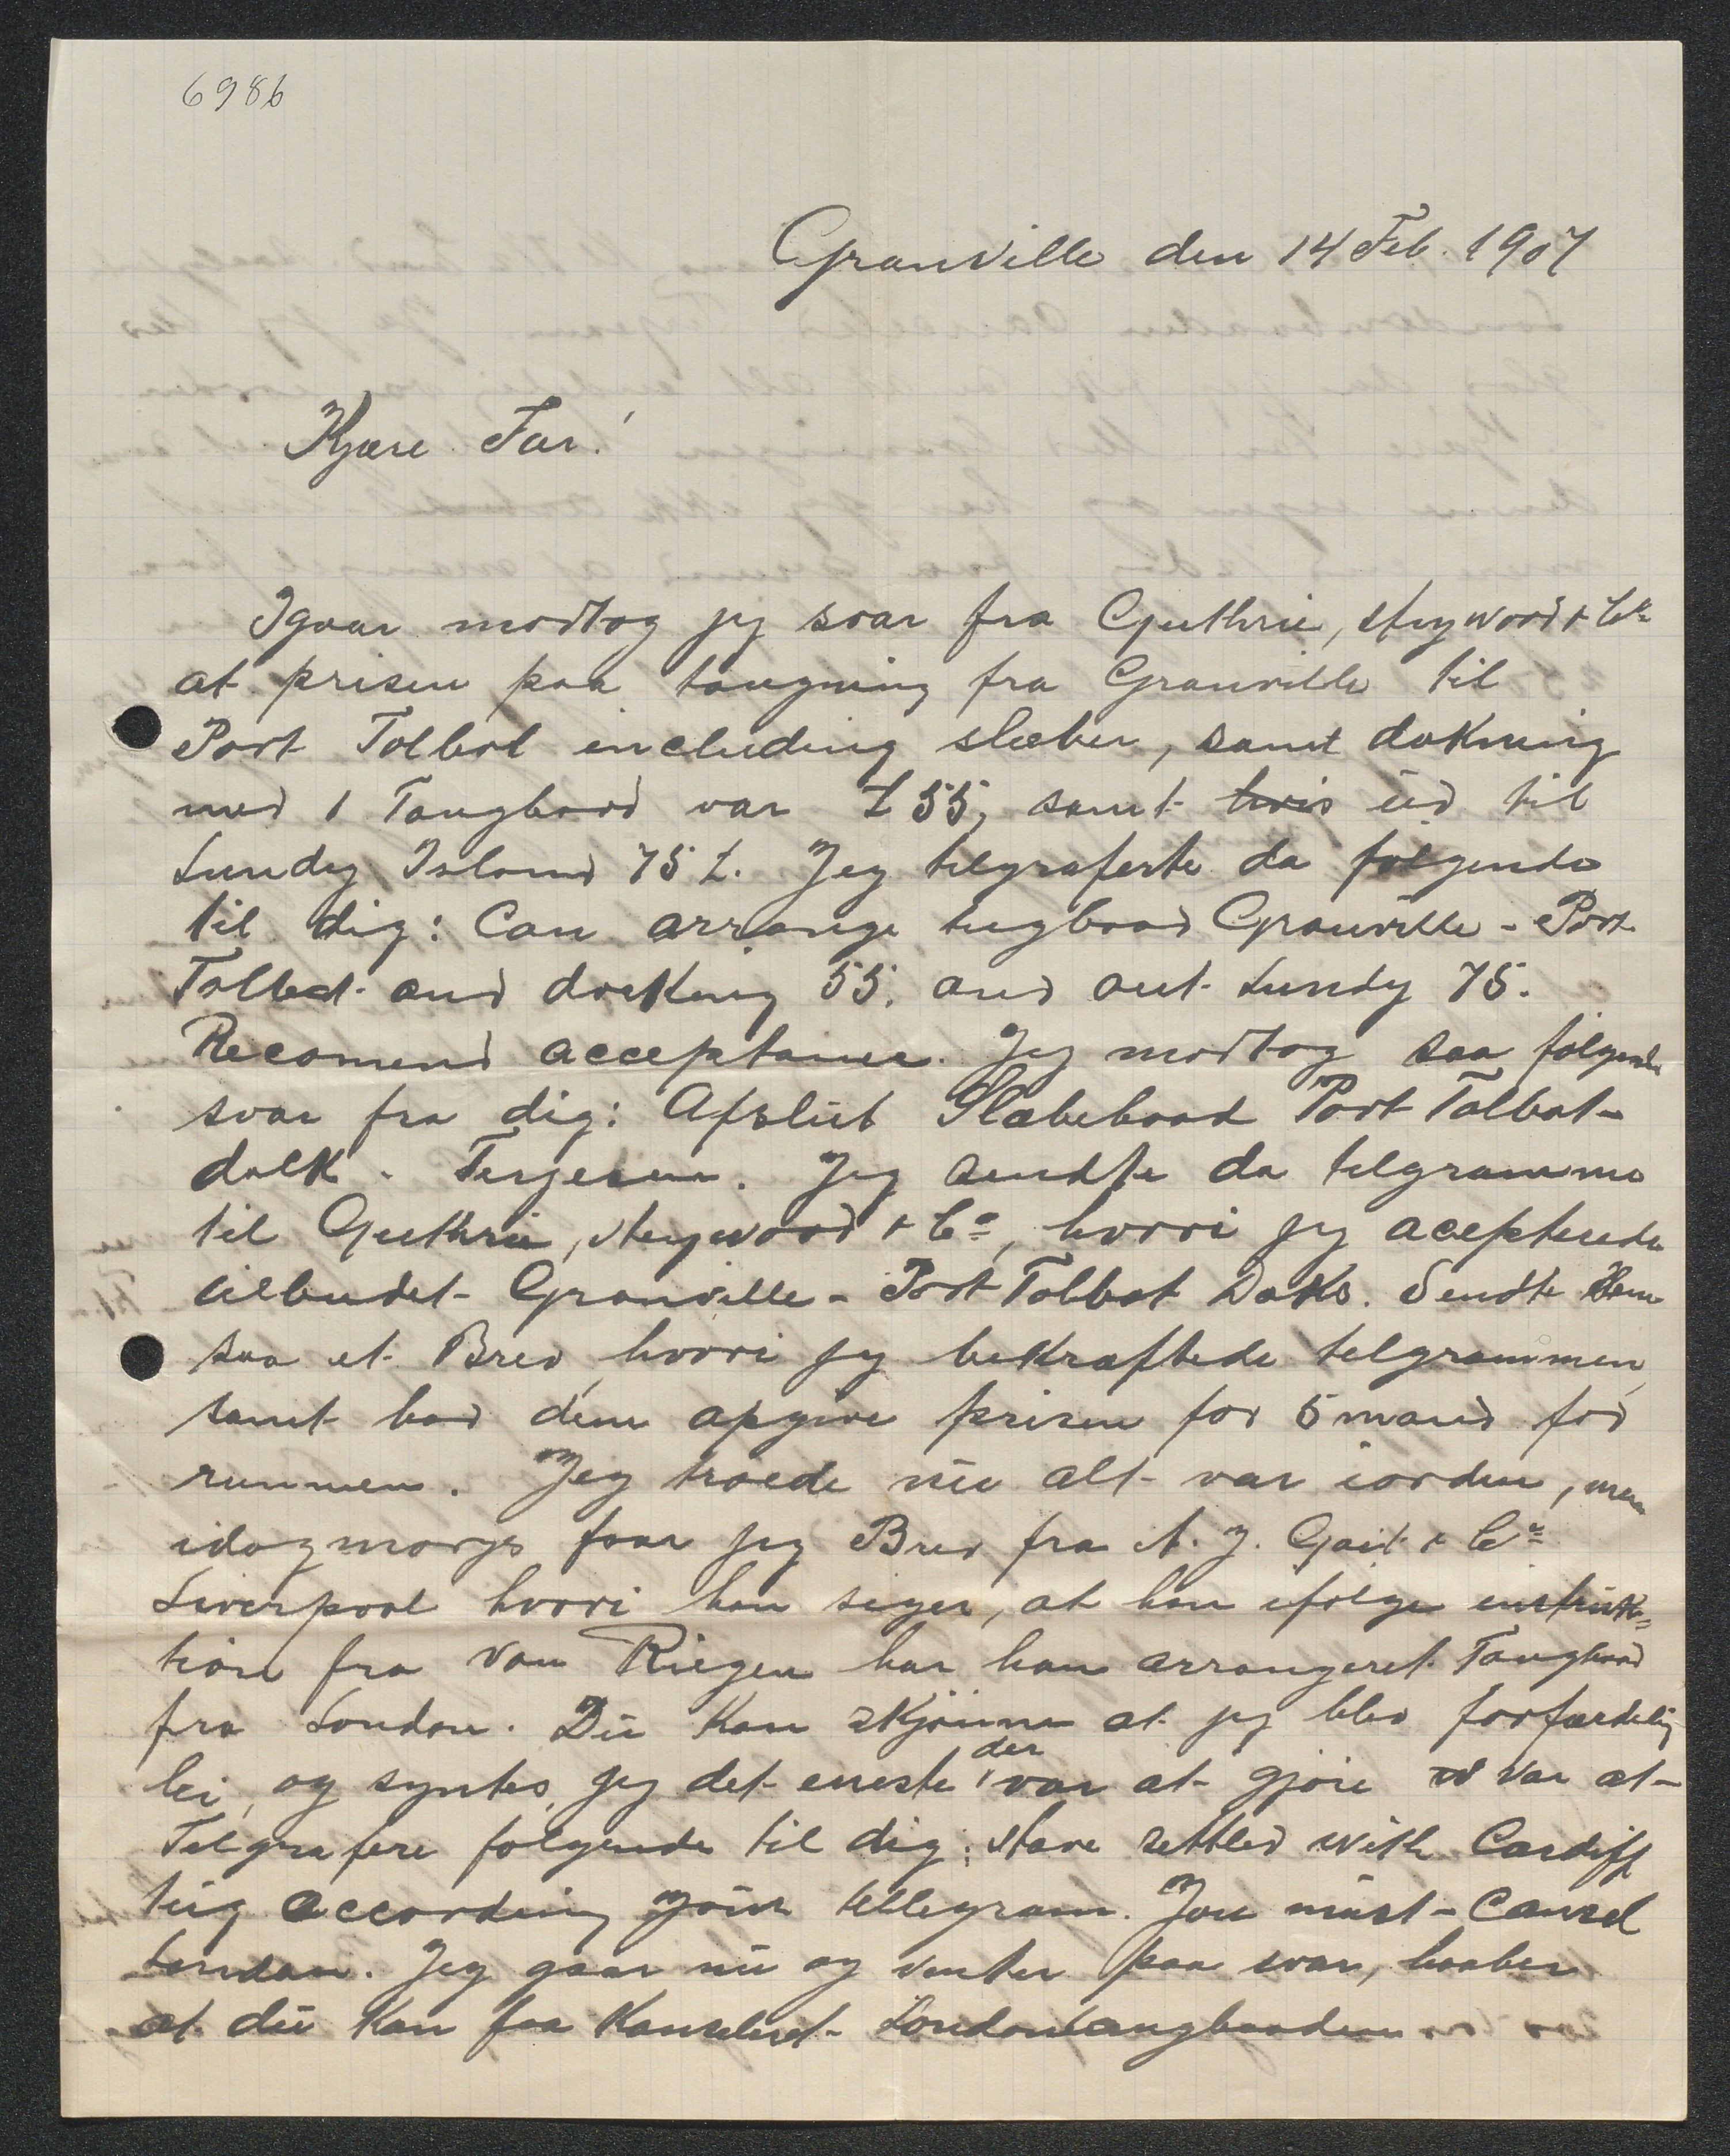 6986
Granville den 14 Feb. 1907
Kjære Far!
Igaar modtog jeg svar fra Guthrie, Heywood & Co
at prisen paa taugning fra Granville til
Port Talbot including slæber, samt dokning
med 1 Taugbaad var £ 55, samt hvis ud til
Lundy Island 75 £. Jeg telgraferte da følgende
til dig: Can arrange tugboad Granville - Port
Talbot and docking 55. and out Lundy 75.
Recomend acceptance. Jeg modtog saa følgende
svar fra dig: Afslut Slæbebaad Port Talbot-
dokk. Terjesen. Jeg sendte da telgramme
til Guthrie, Heywood & Co, hvori jeg acepterede
tilbudet Granville - Port Talbot Doks. Sendte Ham
saa et Brev, hvori jeg bekræftede telgrammen,
samt bad dem opgive prisen for 5 mand for
runmen. Jeg troede nu alt var iorden, men
idagmorges faar jeg Brev fra A. J. Gait & Co
Liverpool hvori han siger, at han ifølge instruk=
tion fra van Riegen har han arrangeret Taugbaad
fra London. Du kan skjønne at jeg blev forfærdelig
lei, og syntes jeg det eneste der var at gjøre var at
Telgrafere følgende til dig: Have settled with Cardiff
tug according your tellegram. You must Cansel
London. Jeg gaar nu og venter paa svar, haaber
at du kan faa kanseleret Londontaugbaaden.